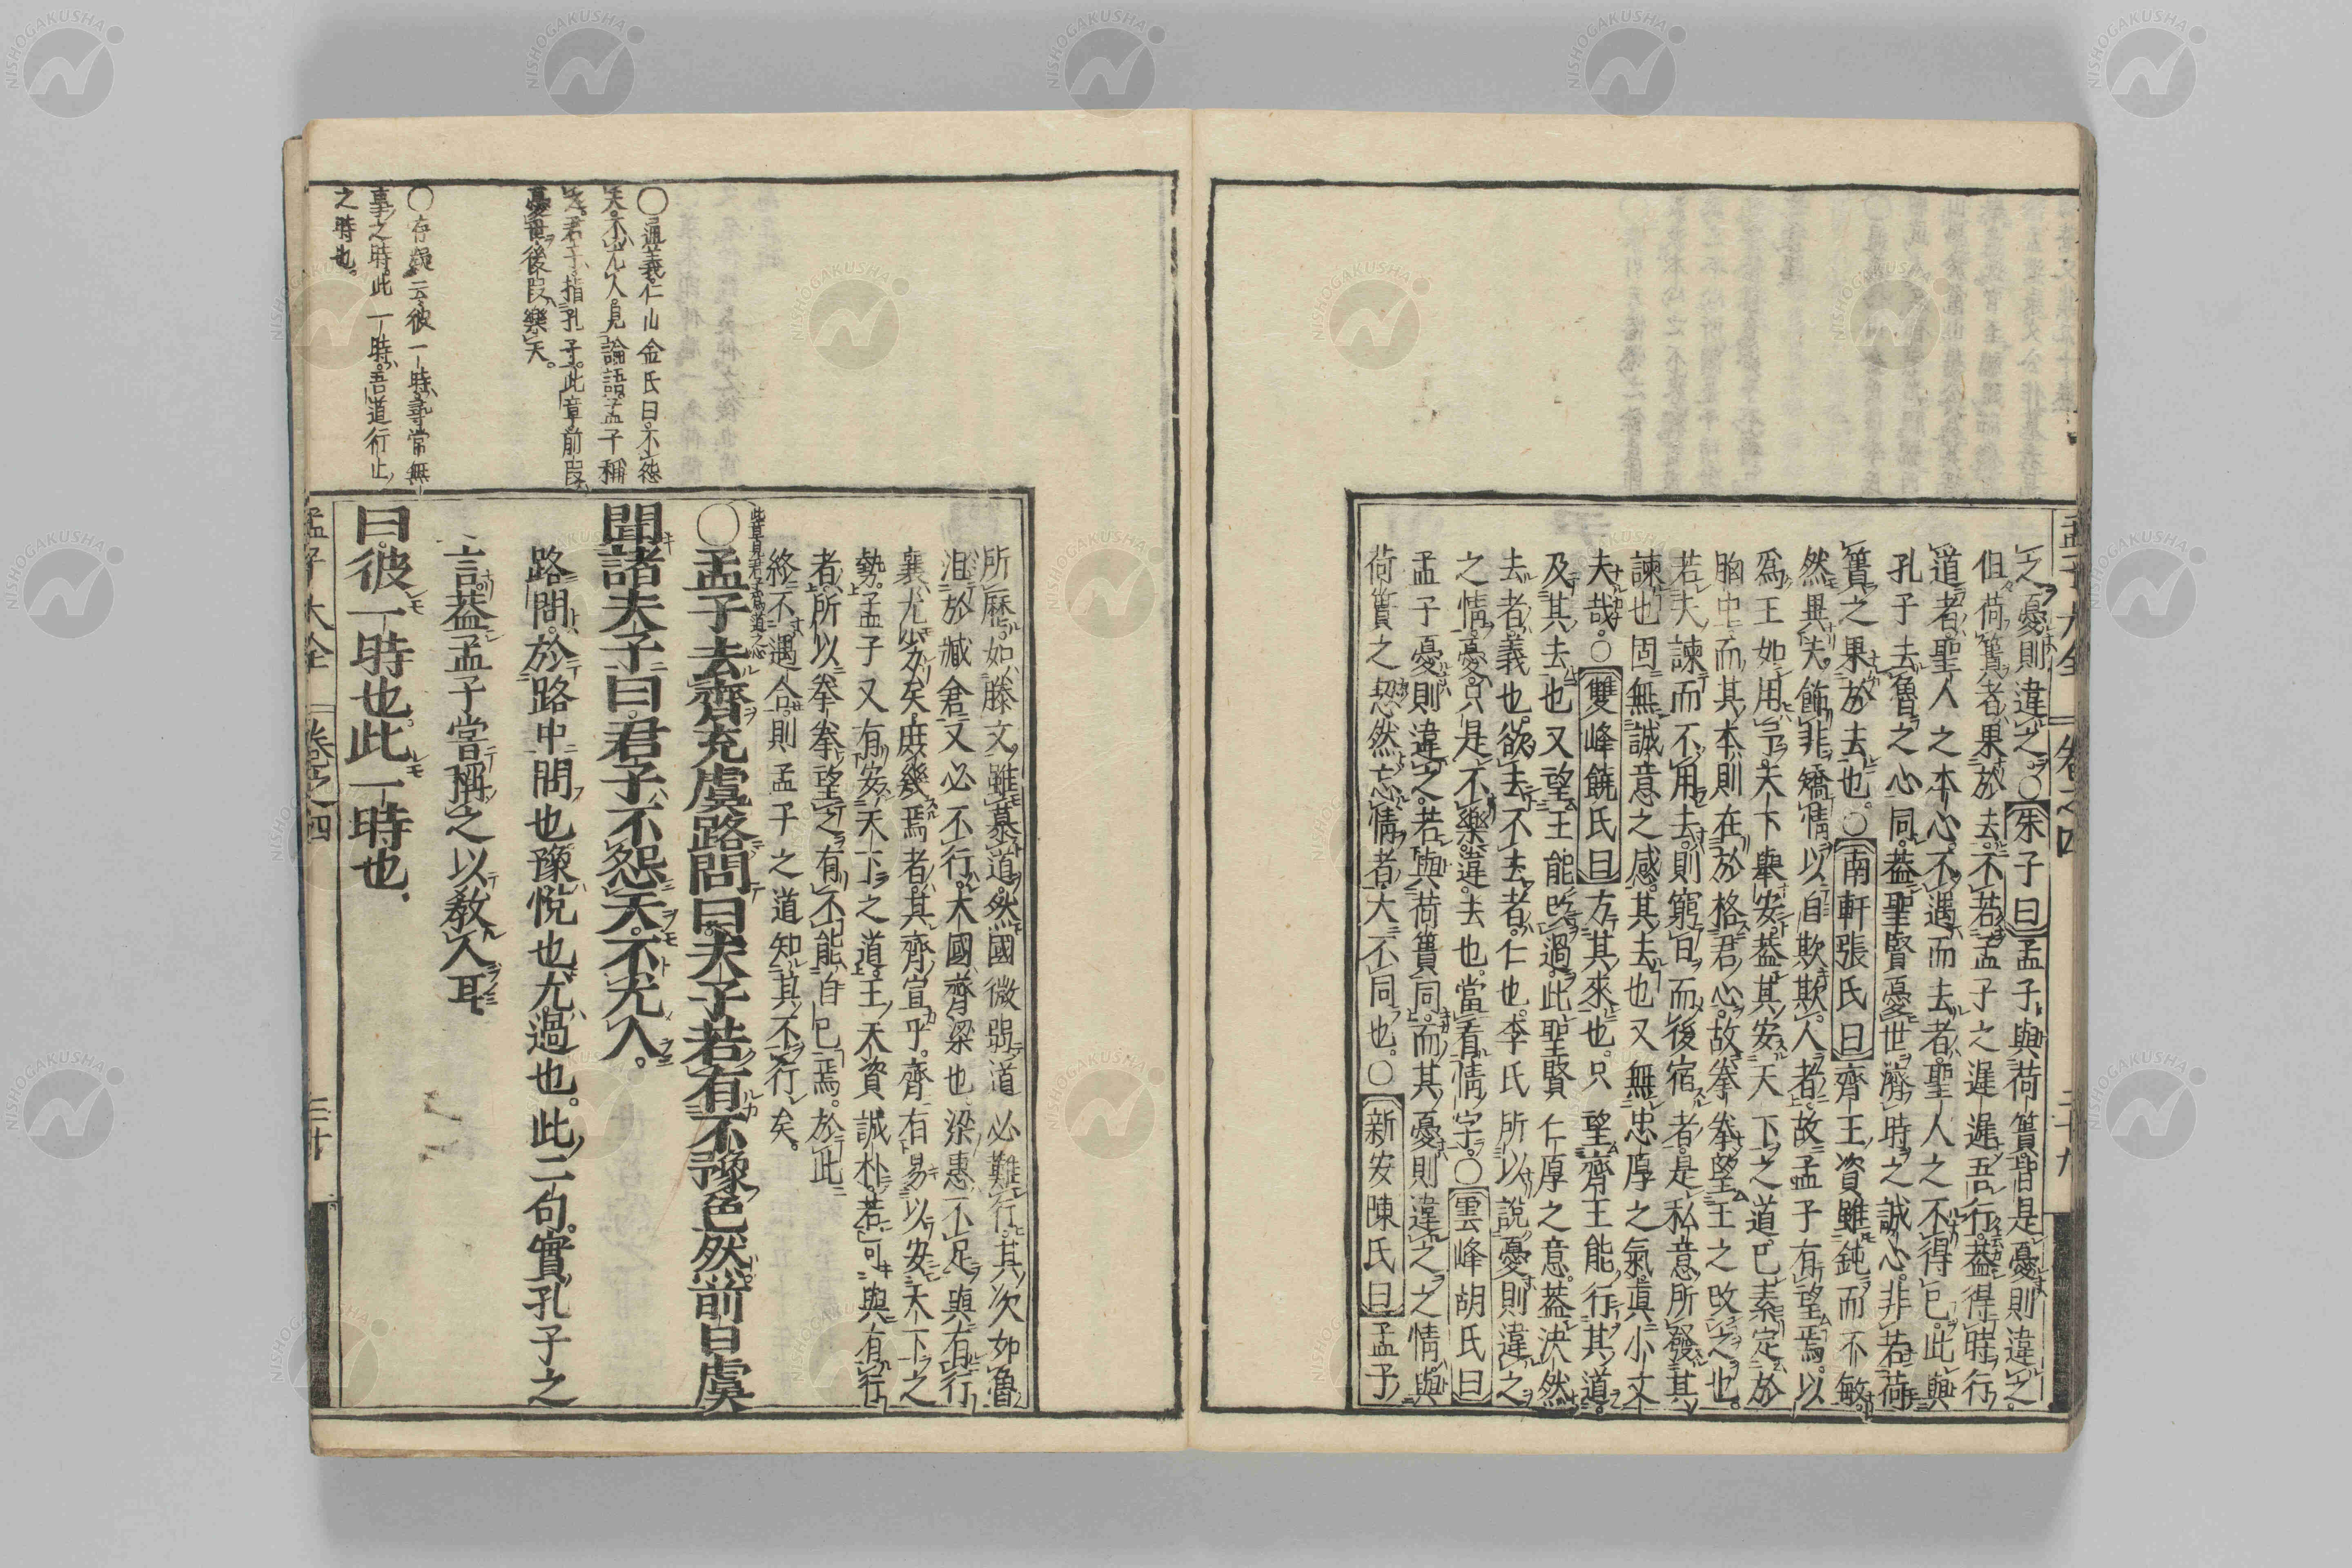 孟子大全 卷之四 三十九
之憂則違之○朱子曰孟子與荷蕢皆是憂則違之
但荷蕢者果於去不若孟子之遲遲吾行蓋得時行
道者聖人之本心不遇而去者聖人之不得已此與
孔子去魯之心同蓋聖賢憂世濟時之誠心非若荷
蕢之果於去也○南軒張氏曰齊王資雖鈍而不敏
然異夫飾非矯情以自欺欺人者故孟子有望焉以
爲王如用予天下舉安蓋其安天下之道已素定於
胸中而其本則在於格君心故拳拳望王之改之也
若夫諫而不用去則窮日而後宿者是私意所發其
諫也固無誠意之感其去也又無忠厚之氣眞小丈
夫哉○雙峰饒氏曰方其來也只望齊王能行其道
及其去也又望王能改過此聖賢仁厚之意蓋決然
去者義也欲去不去者仁也李氏所以說憂則違之
之情憂只是不樂違去也當看情字○雲峰胡氏曰
孟子憂則違之若與荷蕢同而其憂則違之之情與
荷蕢之恝然忘情者大不同也○新安陳氏曰孟子
所歷如滕文雖慕道然國微弱道必難行其次如魯
沮於臧倉又必不行大國齊梁也梁惠不足與有行
襄尤劣矣庶幾焉者其齊宣乎齊有易以安天下之
勢孟子又有安天下之道王天資誠朴若可與有行
者所以拳拳望之有不能自已焉於此
終不遇合則孟子之道知其不行矣
此章見君子爲道之心
○孟子去齊充虞路問曰夫子若有不豫色然前日虞
聞諸夫子曰君子不怨天不尤人
路問於路中問也豫悅也尤過也此二句實孔子之
言蓋孟子嘗稱之以敎人耳
曰彼一時也此一時也
○通義仁山金氏曰不怨
天不尤人見論語孟子稱
君子指孔子此章前段
憂世後段樂天
○存疑云彼一時尋常無
事之時此一時吾道行止
之時也
孟子大全 卷之四 三十